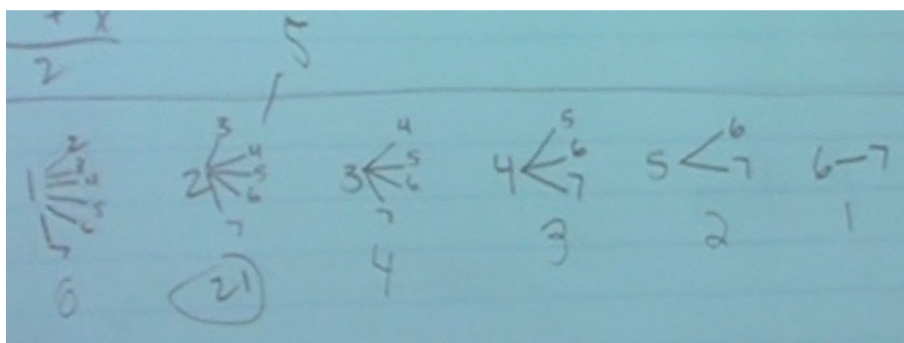 + x
2
5
1 2 3 4 5 6 7
2 3 4 5 6 7
3 4 5 6 7
4 5 6 7
5 6 7
6 - 7
6 21 4 3 2 1